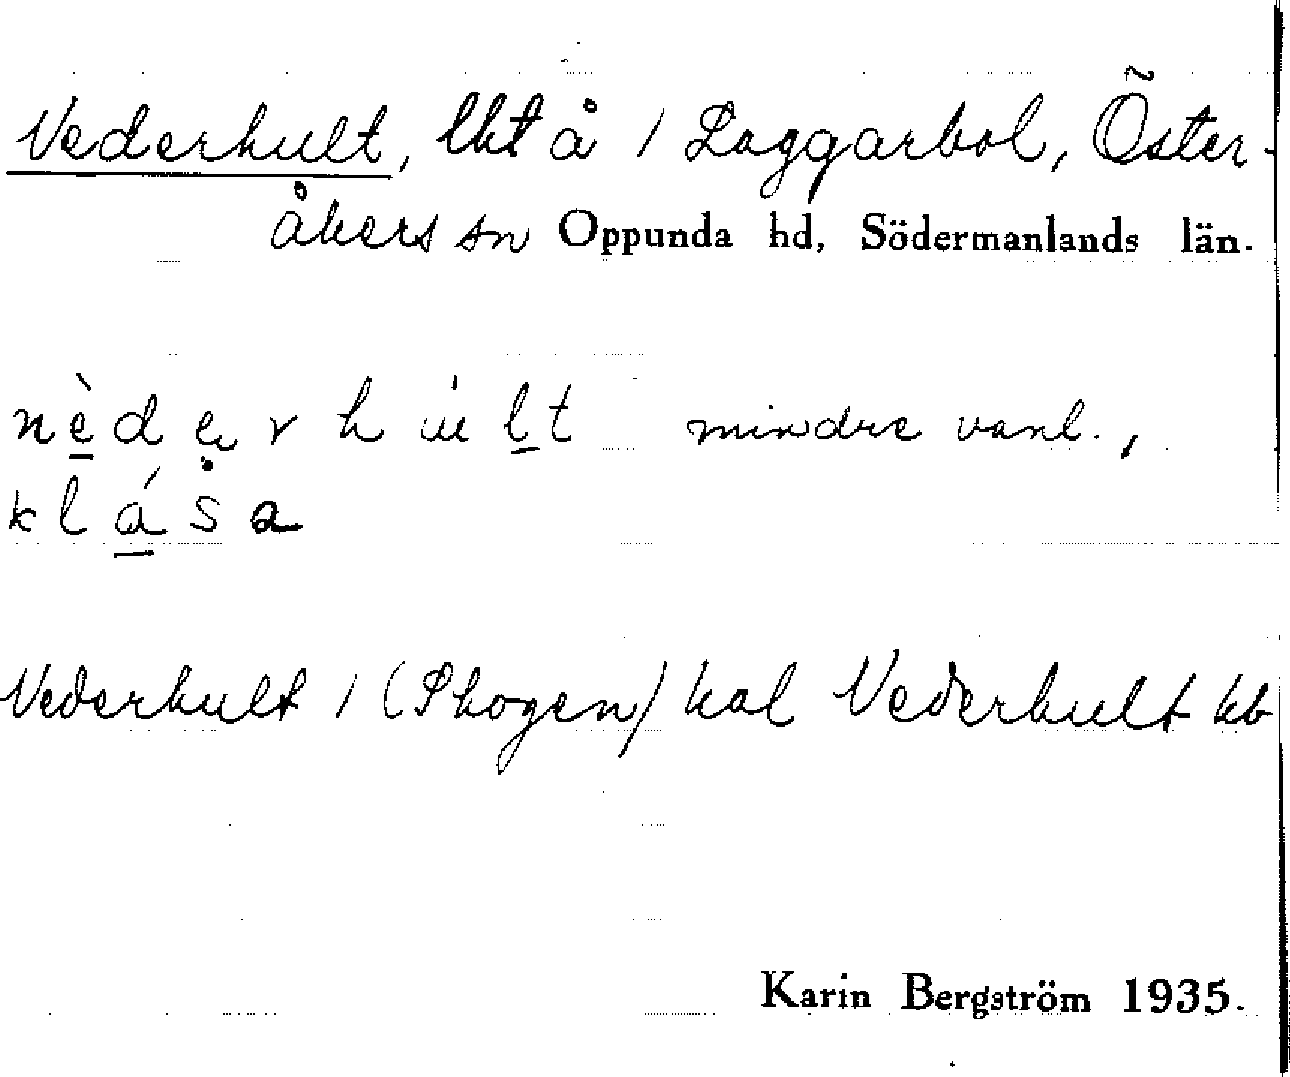 Vederhult, lht å / Laggarbol, Öster-
åkers sn Oppunda hd, Södermanlands län.
nèderhult mindre vanl.,
klása
Vederhult / (Skogen) kal Vederhult kb
Karin Bergström 1935.